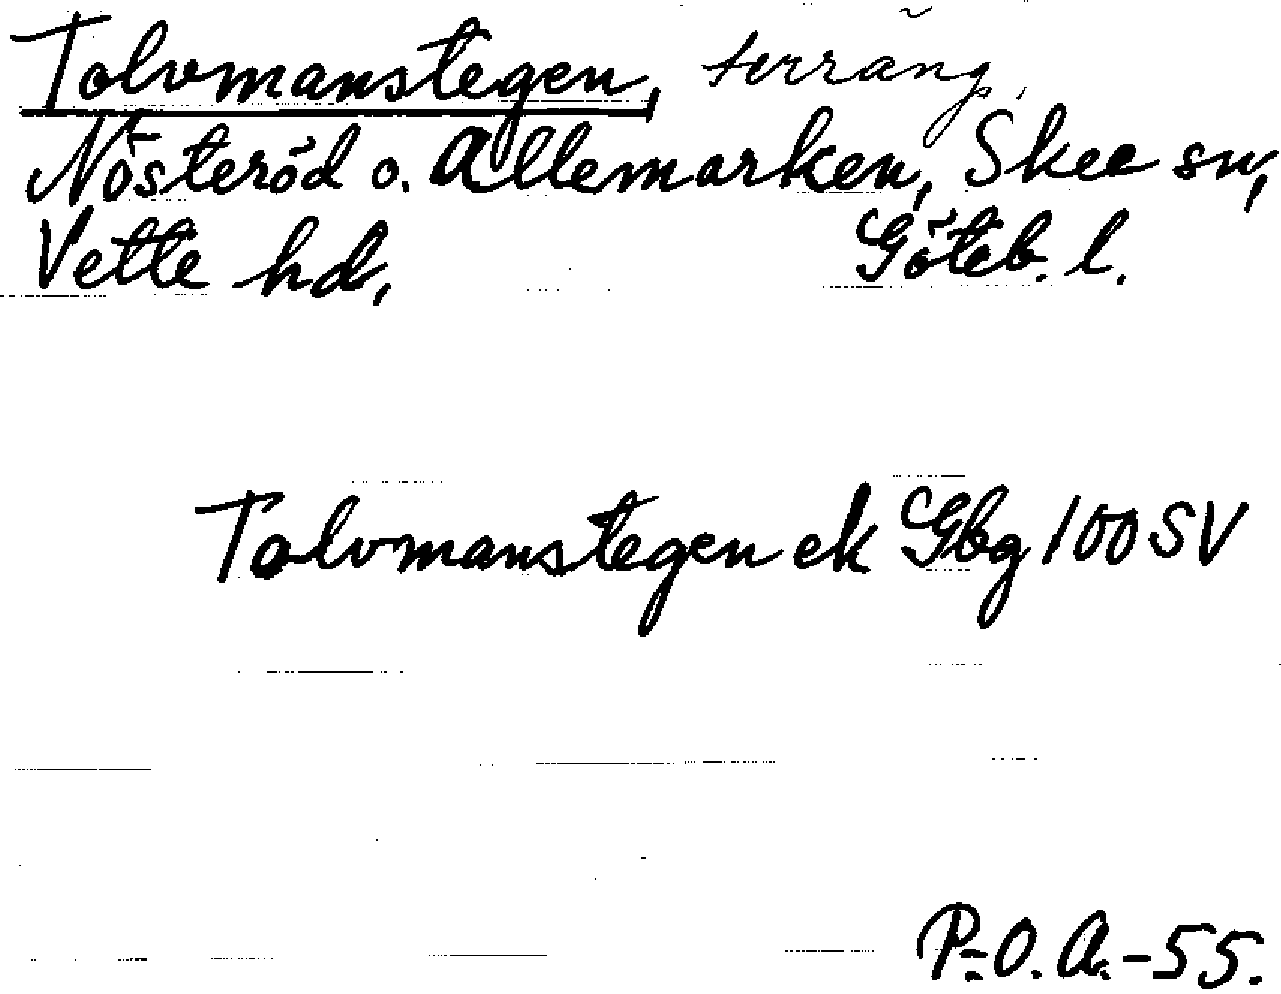 Tolvmanstegen, terräng,
Nösteröd o. Allemarken, Skee sn,
Vette hd, Göteb. l.
Tolvmanstegen ek Gbg 100 SV
P.-O. A.-55.